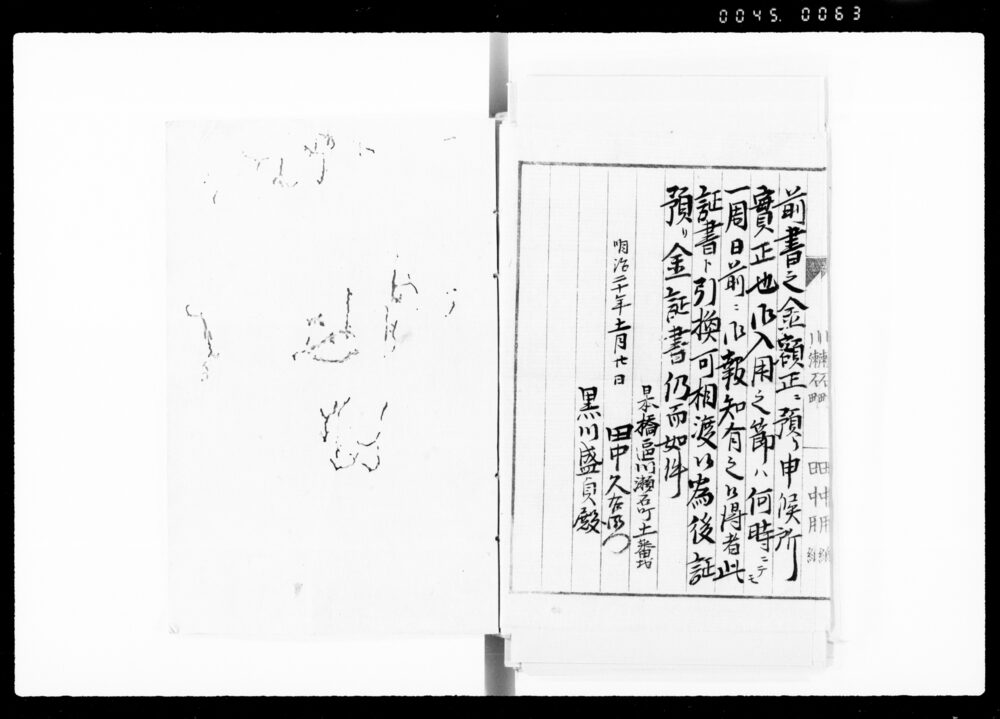 0045. 0063
前書之金額正ニ預リ申候所
實正也御入用之節ハ何時ニテモ
一周日前ニ御報知有之候得者此
証書ト引換可相渡候為後証
預リ金証書仍而如件
明治二十年十二月廿日
日本橋區川瀬石町十二番地
田中久右衛門
黒川盛貞殿
川瀬石町
田中用紙